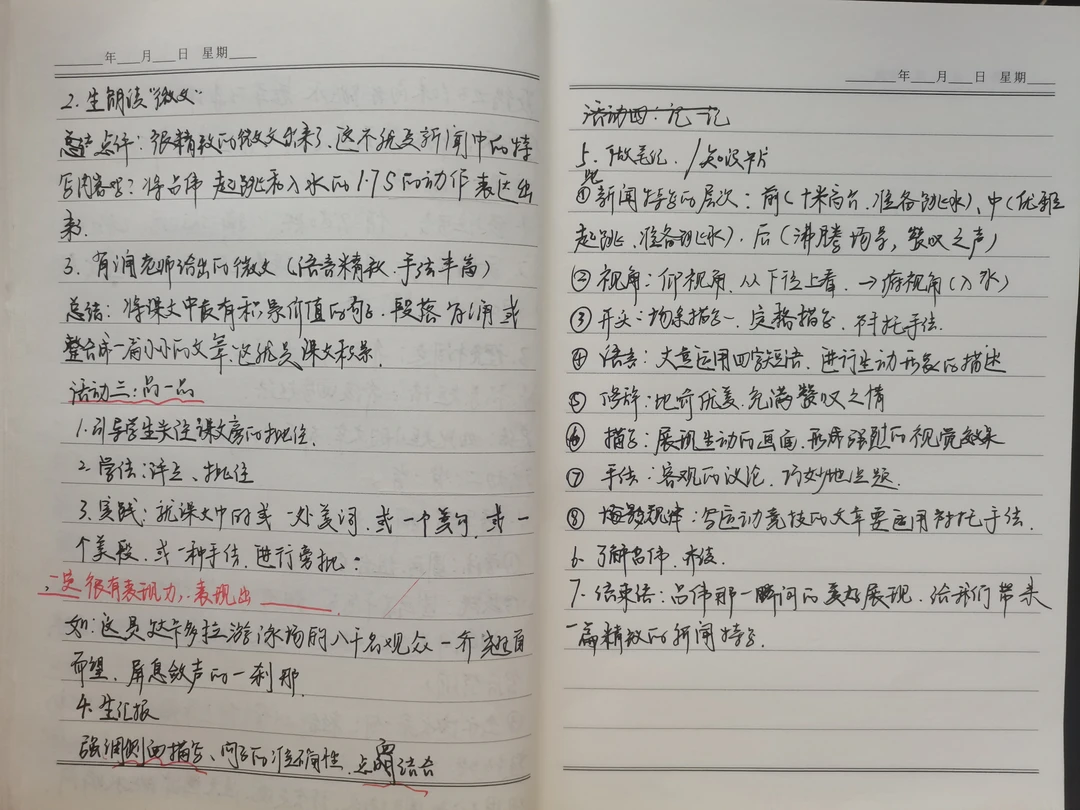 年 月 日 星期
2. 生朗读“微文”
总结点评：很精致的微文出来了，这不就是新闻中的特
写内容吗？将吕伟起跳和入水的1.7S的动作表达出
来.
3. 背诵老师给出的微文（语言精致、手法丰富）
总结：将课文中最有积累价值的句子、段落背诵或
整合成一篇小小的文章，这就是课文积累.
活动三：品一品
1. 引导学生关注课文旁的批注.
2. 学法：评点、批注
3. 实践：就课文中的或一处美词、或一个美句、或一
个美段、或一种手法，进行旁批：
很有表现力，表现出
如：这是达卡多拉游泳场的八千名观众一齐翘首
而望、屏息敛声的一刹那.
4. 生汇报
强调侧面描写、问句的准确性、点面结合
年 月 日 星期
活动四：记一记
5. 做笔记 / 知识卡片
① 新闻特写的层次：前（十米高台、准备跳水）、中（优雅
起跳、准备跳水）、后（沸腾场景，赞叹之声）
② 视角：仰视角，从下往上看，→俯视角（入水）
③ 开头：场景描写、定格描写、衬托手法.
④ 语言：大意运用四字短语，进行生动形象的描述
⑤ 修辞：比喻优美、充满赞叹之情
⑥ 描写：展现生动的画面，形成强烈的视觉效果
⑦ 手法：客观的议论，巧妙地点题.
⑧ 规律：写运动竞技的文章要运用衬托手法.
6. 了解吕伟、
7. 结束语：吕伟那一瞬间的美好展现，给我们带来
一篇精致的新闻特写.